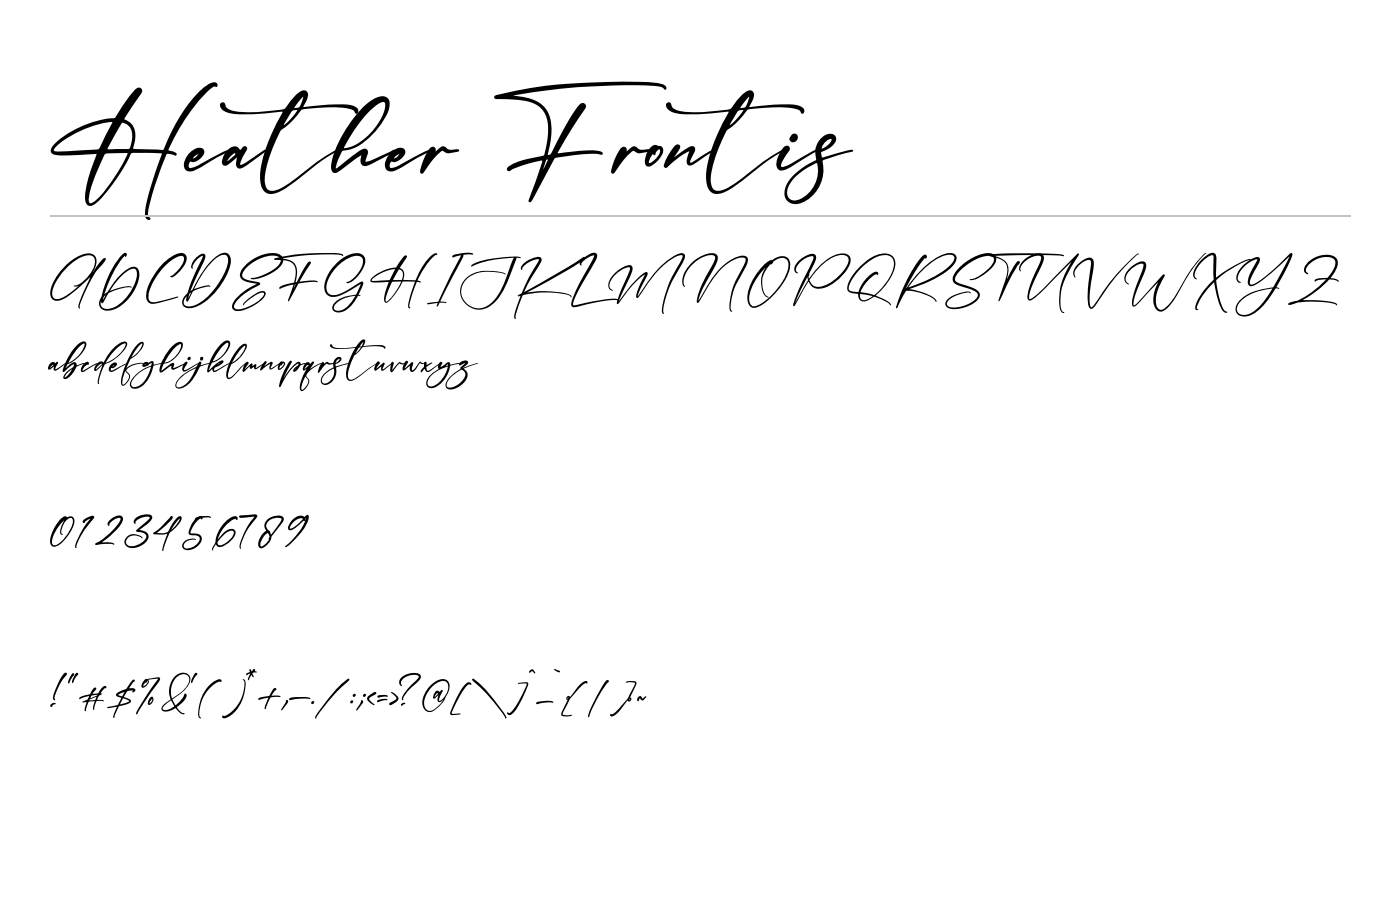 Heather Frontis
ABCDEFGHIJKLMNOPQRSTUVWXYZ
abcdefghijklmnopqrstuvwxyz
0123456789
!"#$%&'()*+,-./:;<=>?@[\]^_`{|}~